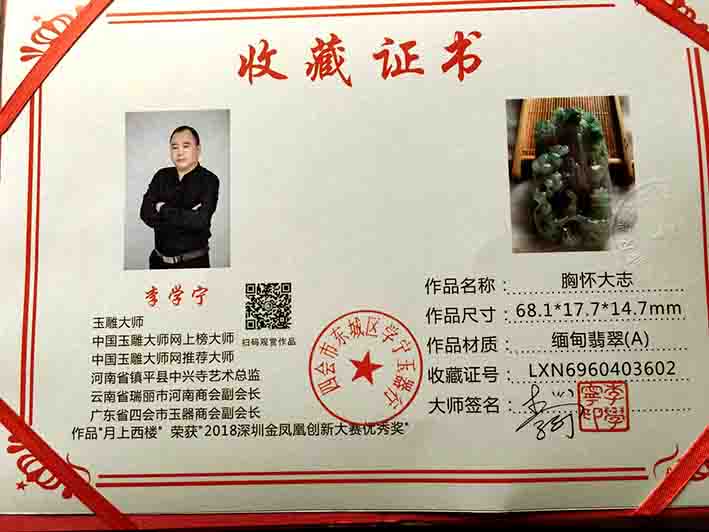 收藏证书
李学宁
玉雕大师
中国玉雕大师网上榜大师
中国玉雕大师网推荐大师
河南省镇平县中兴寺艺术总监
云南省瑞丽市河南商会副会长
广东省四会市玉器商会副会长
作品"月上西楼" 荣获"2018深圳金凤凰创新大赛优秀奖"
扫码观赏作品
四会市东城区学宁玉器行
作品名称： 胸怀大志
作品尺寸： 68.1*17.7*14.7mm
作品材质： 缅甸翡翠(A)
收藏证号： LXN6960403602
大师签名：
李學寧印